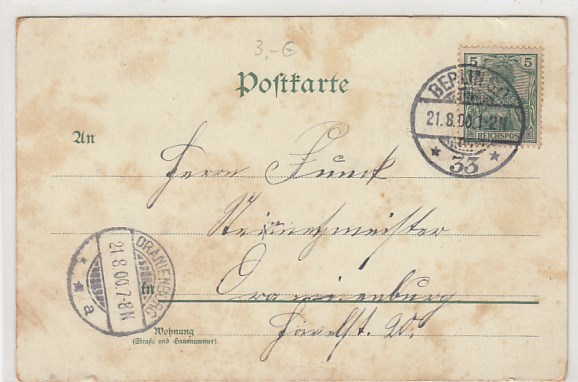 3.-€
Postkarte
5 5
REICHSPOST
BERLIN
21.8.00.1-2N
* 33 *
An
Herrn Funck
Steinmetzmeister
in Oranienburg
Havelst. 20.
Wohnung
(Straße und Hausnummer)
ORANIENBURG
21.8.00.7-8N
* a *